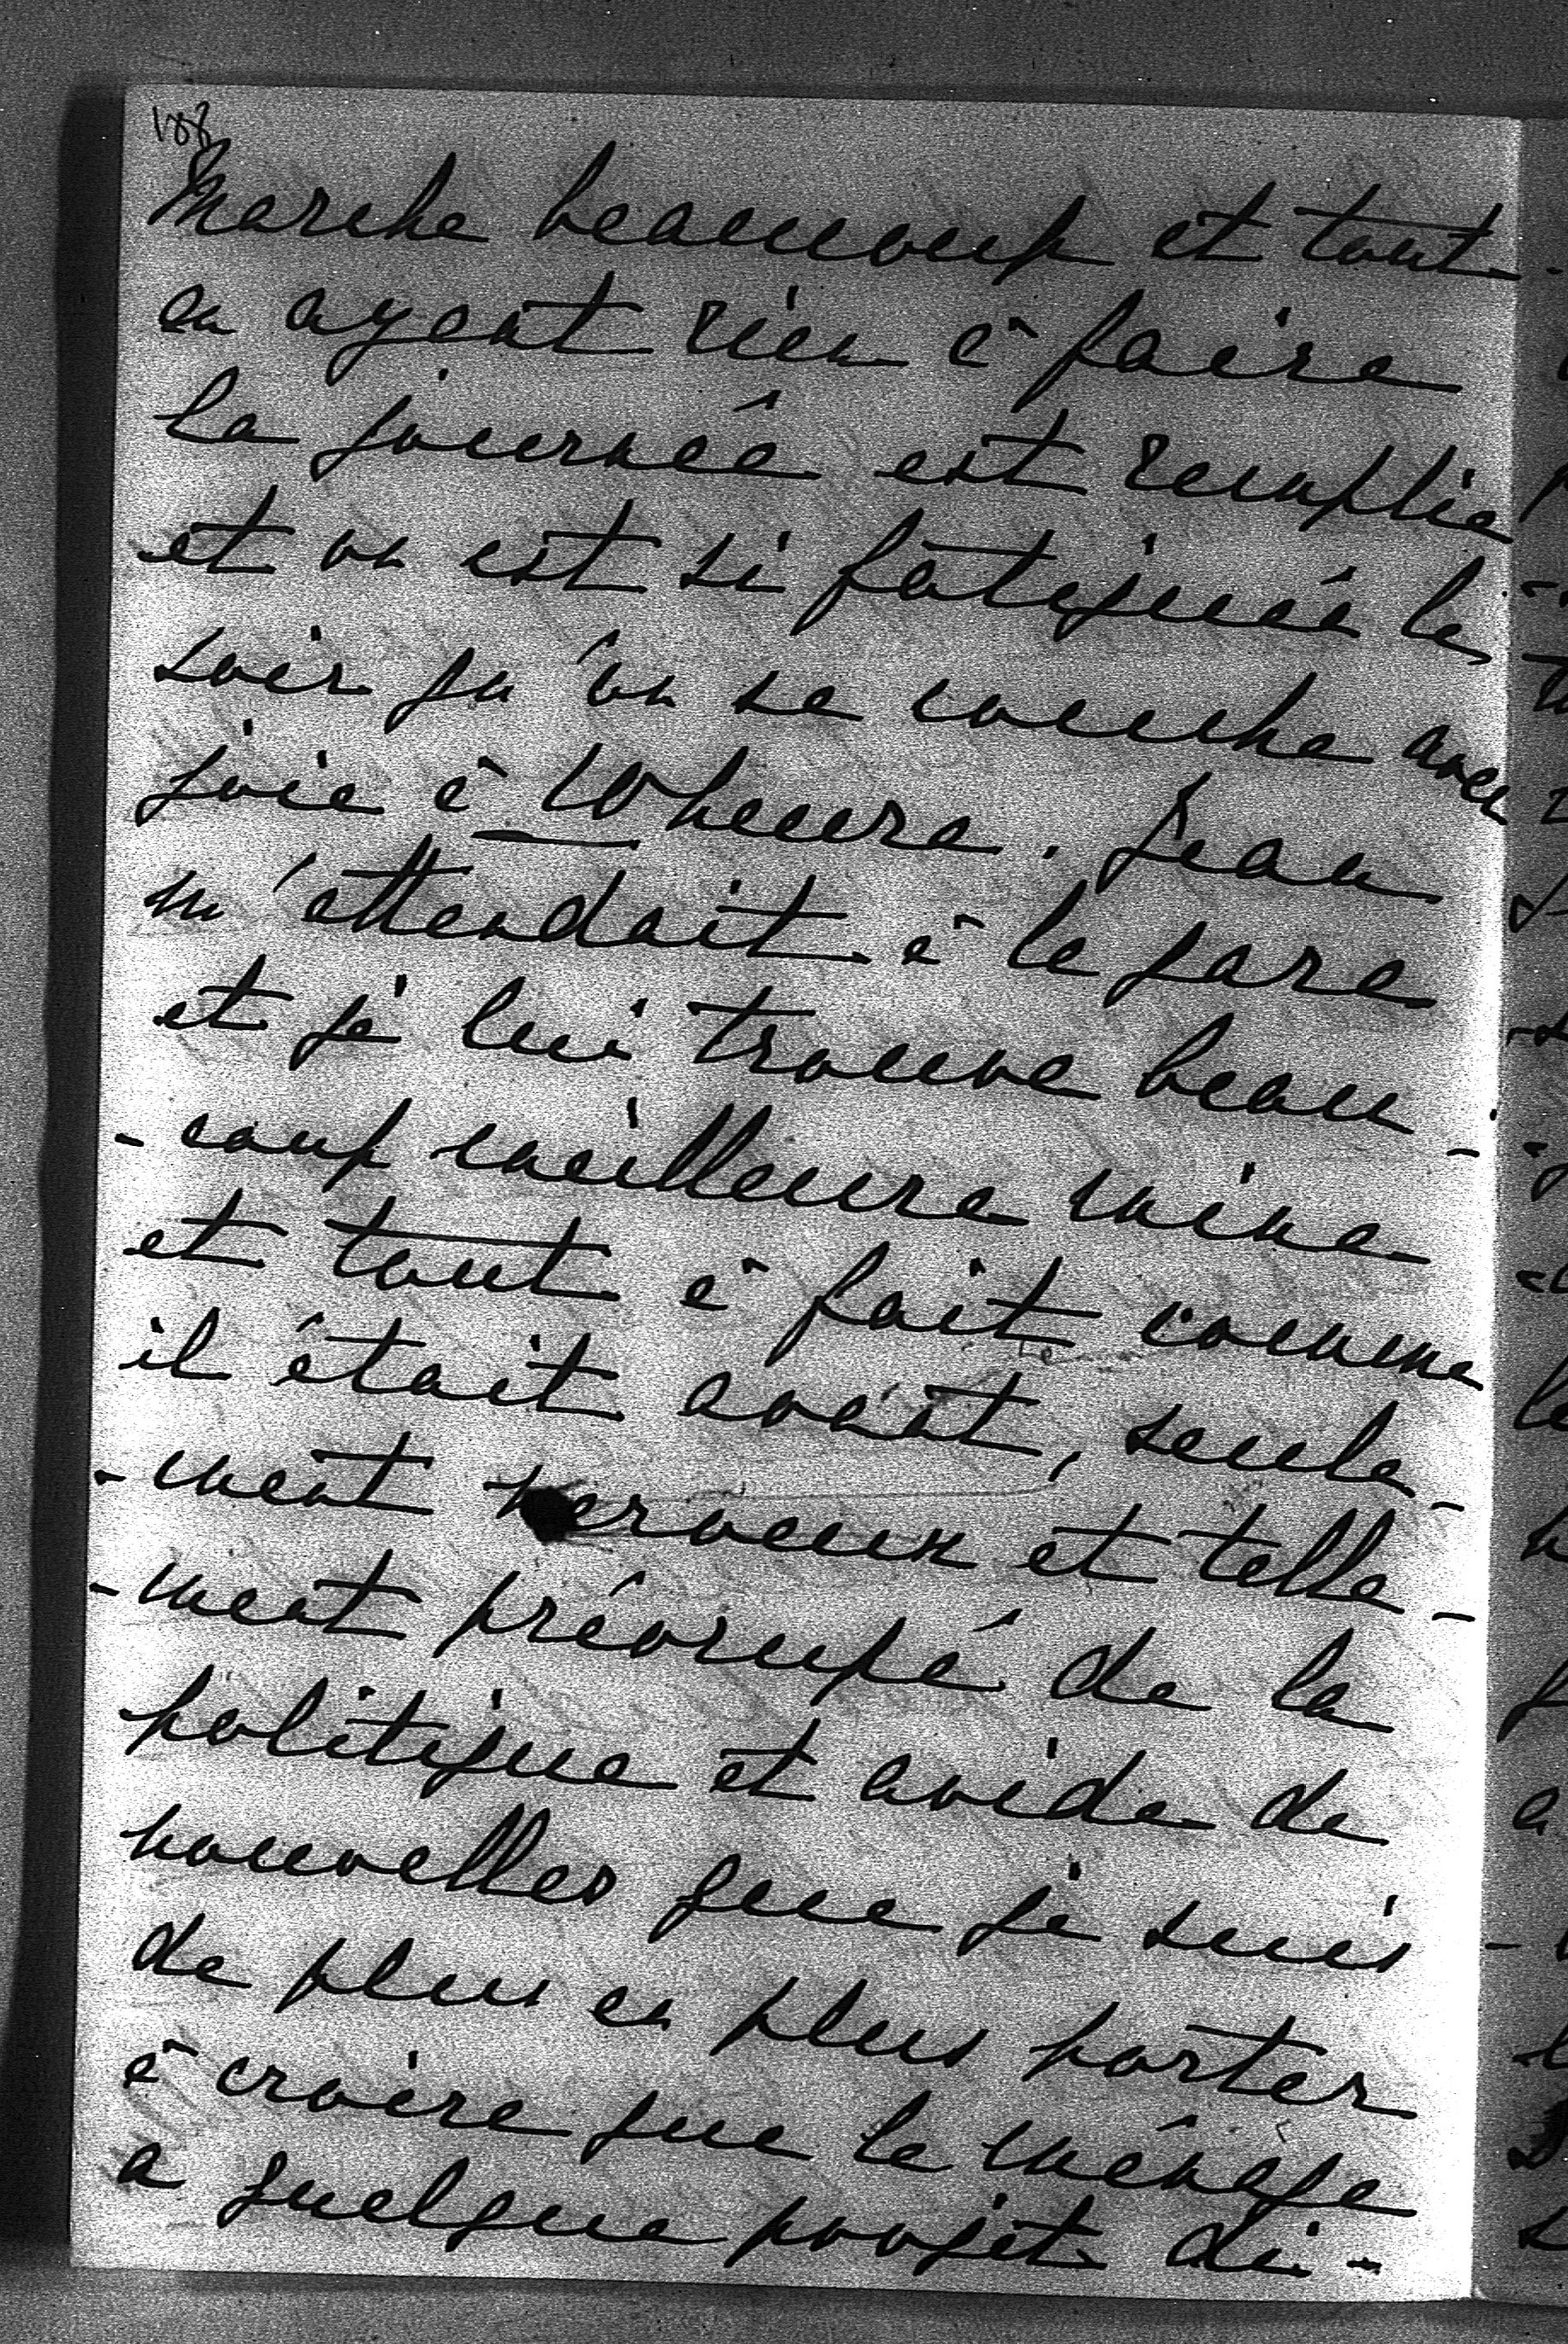 108
marche beaucoup et tout
en ayant rien à faire
la journée est remplie
et on est si fatiguée le
soir qu'on se couche avec
joie à 10 heure. Jean
m'attendait à la gare
et je lui trouve beau-
-coup meilleure mine
et tout à fait comme
il était avant, seule-
-ment nerveux et telle-
-ment préocupé de la
politique et avide de
nouvelles que je suis
de plus en plus porter
à croire que le ménage
a quelque projet di-